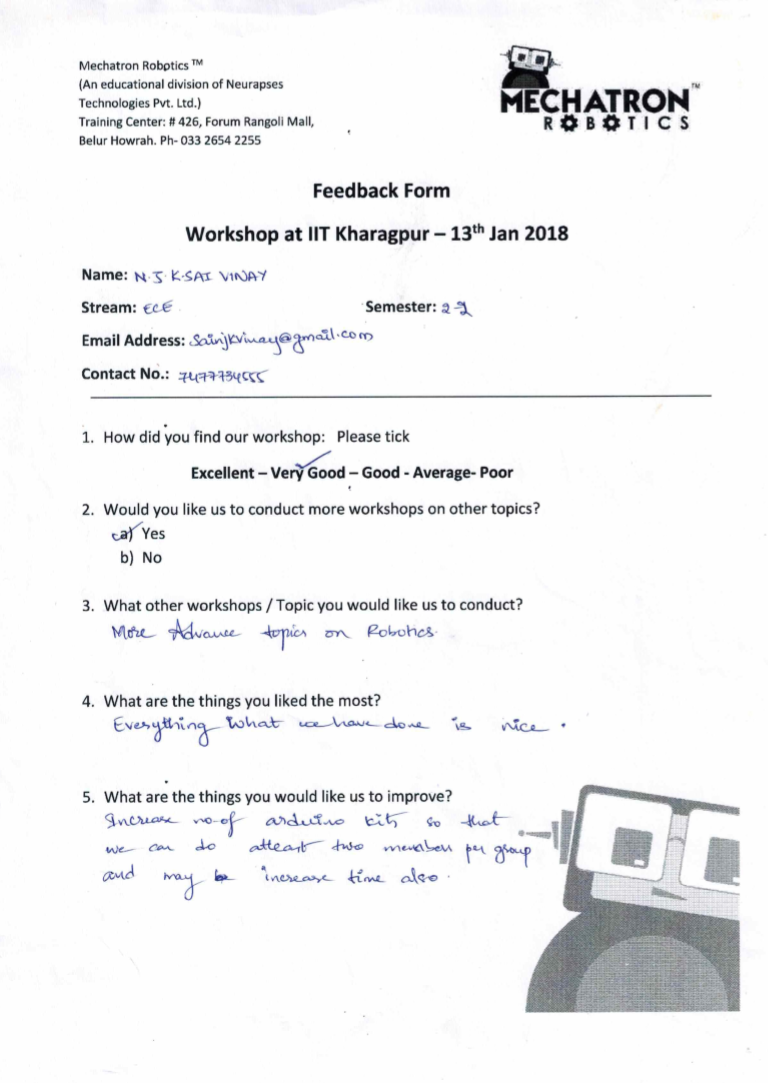 Mechatron Robotics ™
(An educational division of Neurapses
Technologies Pvt. Ltd.)
Training Center: # 426, Forum Rangoli Mall,
Belur Howrah. Ph- 033 2654 2255
MECHATRON™
ROBOTICS
Feedback Form
Workshop at IIT Kharagpur – 13th Jan 2018
Name: N.J.K.SAI VINAY
Stream: ECE
Semester: 2-2
Email Address: sainjkvinay@gmail.com
Contact No.: 7477734555
1. How did you find our workshop: Please tick
Excellent – Very Good – Good - Average- Poor
2. Would you like us to conduct more workshops on other topics?
a) Yes
b) No
3. What other workshops / Topic you would like us to conduct?
More Advance topics on Robotics.
4. What are the things you liked the most?
Everything what we have done is nice.
5. What are the things you would like us to improve?
Increase no.of arduino kits so that
we can do atleast two members per group
and may be increase time also.